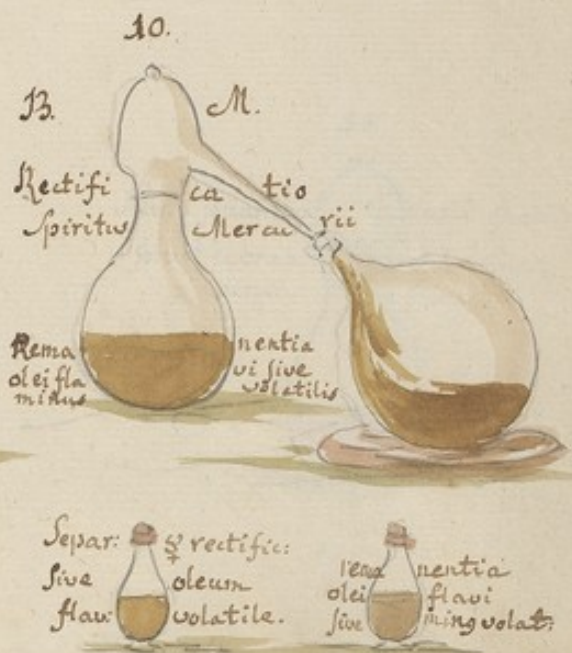 10.
B. M.
Rectifi ca tio
Spiritus Mercu rii
Rema nentia
olei fla vi sive
minus volatilis
Separ: ☿ rectific:
sive oleum
flav: volatile.
rema nentia
olei flavi
sive ming volat: